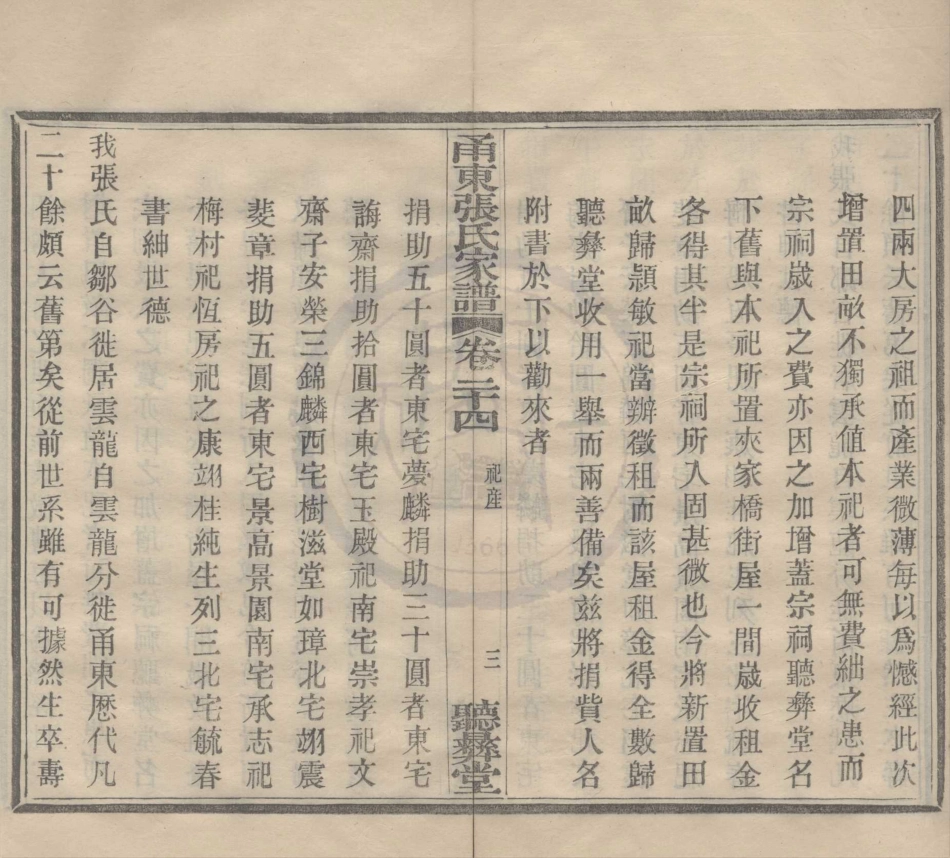 四兩大房之祖而產業微薄每以爲憾經此次
增置田畝不獨承値本祀者可無費絀之患而
宗祠歲入之費亦因之加增蓋宗祠聽彝堂名
下舊與本祀所置夾家橋街屋一間歲收租金
各得其半是宗祠所入固甚微也今將新置田
畝歸頴敏祀當辦徵租而該屋租金得全數歸
聽彝堂收用一舉而兩善備矣茲將捐貲人名
附書於下以勸來者
甬東張氏家譜 卷二十四 祀產 三 聽彝堂
捐助五十圓者東宅夢麟捐助三十圓者東宅
誨齋捐助拾圓者東宅玉殿祀南宅崇孝祀文
齋子安榮三錦麟西宅樹滋堂如璋北宅翊震
斐章捐助五圓者東宅景高景園南宅承志祀
梅村祀恆房祀之康翊桂純生列三北宅毓春
書紳世德
我張氏自鄒谷徙居雲龍自雲龍分徙甬東歷代凡
二十餘頗云舊第矣從前世系雖有可據然生卒壽